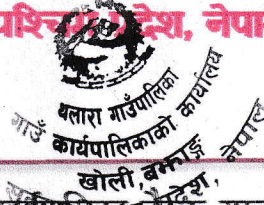 पश्चिम प्रदेश, नेपाल
थलारा गाउँपालिका
गाउँ कार्यपालिकाको कार्यालय
खोली, बझाङ्ग
प्रदेश, नेपाल